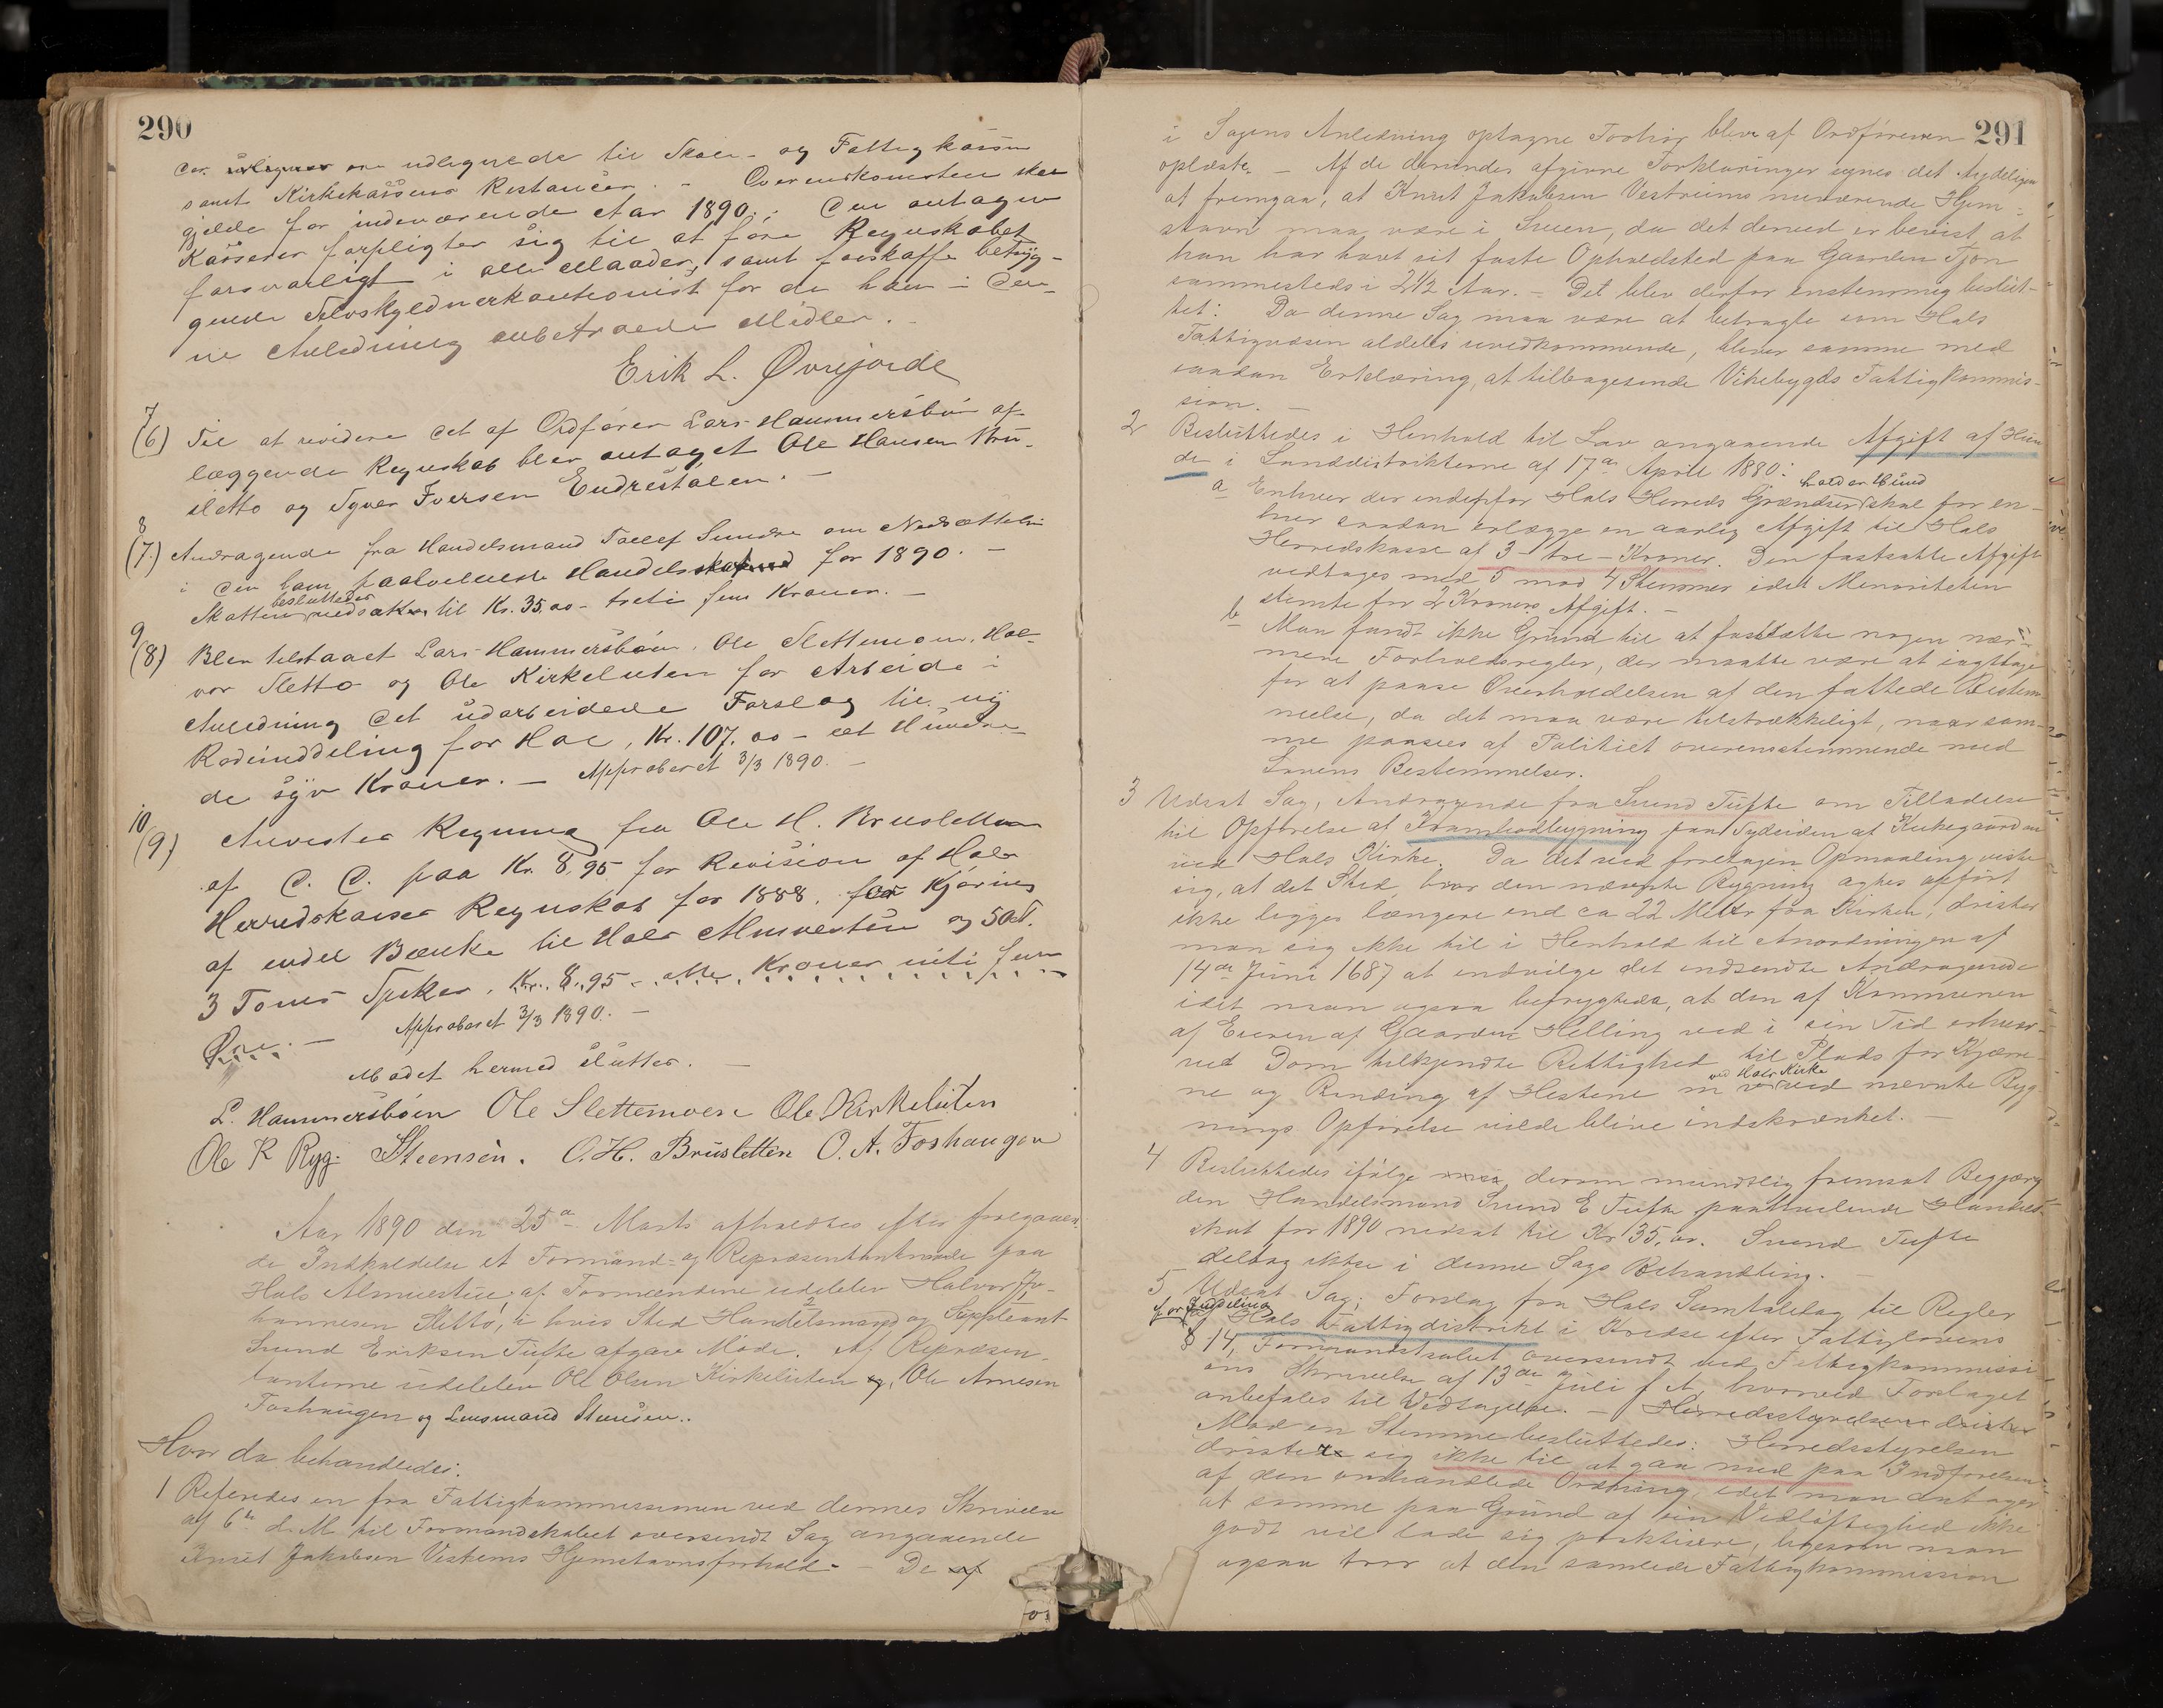 290
der udlignede til Skole- og Fattigkassen
samt Kirkekassens Restancer. - Overenskomsten skal
gjælde for indeværende Aar 1890. Den antagne
Kasserer forpligter sig til at føre Regnskabet
forsvarligt i alle Maader, samt forskaffe betryg-
gende Selvskyldnerkautionist for de ham i Den-
ne Anledning anbetroede Midler. -
Erik L. Øvrejorde
7
(6) Til at revidere det af Ordfører Lars Hammersbøen af-
læggende Regnskab blev antaget Ole Hansen Bru-
sletto og Syver Iversen Eudrestølen. -
8
(7.) Andragende fra Handelsmand Tollef Sundre om Nedsættelse
i den ham paahvilende Handelsskat for 1890. -
besluttedes
Skatten nedsat til Kr. 35.00 - treti fem Kroner. -
9
(8) Blev tilstaaet Lars Hammersbøen, Ole Slettemoen, Hal-
vor Sletto og Ole Kirkeluten for Arbeide i
Anledning det udarbeidede Forslag til ny
Rodeinddeling for Hol, Kr. 107.00 - et Hundre-
de syv Kroner. - Approberet 3/3 1890. -
10
(9) Anvistes Regning fra Ole H. Brusletten
af C. C. paa Kr. 8,95 for Revision af Hols
Herredskasses Regnskab for 1888, for Kjøring
af endel Bænke til Hols Almuestue og 50 St.
3 Toms Spiker, Kr. 8.95 - otte Kroner niti fem
Øre. - Approberet 3/3 1890. -
Mødet hermed sluttes. -
L. Hammersbøen Ole Slettemoen Ole Kirkeluten
Ole K Ryg. Steensen. O. H. Brusletten O. A. Foshaugen
Aar 1890 den 25de Marts afholdtes efter foregaaen-
de Indkaldelse et Formand- og Repræsentantmøde paa
Hols Almuestue; af Formændene udeblev Halvor Jo-
hannesen Sletto, i hvis Sted Handelsmand og 2 Suppleant
Svend Eriksen Tufte afgave Møde. Af Repræsen-
tanterne udeblev Ole Olsen Kirkeluten, Ole Arnesen
Foshaugen og Lensmand Stensen..
Hvor da behandledes:
1 Referedes en fra Fattigkommissionen ved dennes Skrivelse
af 6te d. M. til Formandskabet oversendt Sag angaaende
Knut Jakobsen Vestreims Hjemstavnsforhold. - De af
291
i Sagens Anledning optagne Forhør bleve af Ordføreren
oplæste. - Af de derunder afgivne Forklaringer synes det tydeligen
at fremgaa, at Knut Jakobsen Vestreims nuværende Hjem-
stavn maa være i Sveen, da det derved er bevist at
han har havt sit faste Opholdsted paa Gaarden Tjøn
sammesteds i 2 1/2 Aar. - Det blev derfor enstemmig beslut-
tet: Da denne Sag maa være at betragte som Hols
Fattigvæsen aldeles uvedkommende, bliver samme med
saadan Erklæring, at tilbagesende Vikebygds Fattigkommis-
sion. -
2 Besluttedes i Henhold til Lov angaaende Afgift af Hun-
de i Landdistrikterne af 17de April 1880:
holder Hund
a Enhver der indenfor Hols Herreds Grændser skal for en-
hver saadan erlægge en aarlig Afgift til Hols
Herredskasse af 3 - tre - Kroner. Den fastsatte Afgift
vedtoges med 5 mod 4 Stemmer idet Menoriteten
stemte for 2 Kroners Afgift. -
b Man fandt ikke Grund til at fastsætte nogen nær-
mere Forholdsregler, der maatte være at iagttage
for at paase Overholdelsen af den fattede Bestem-
melse, da det maa være tilstrækkeligt, naar sam-
me paasees af Politiet overensstemmende med
Lovens Bestemmelser.
3 Udsat Sag, Andragende fra Svend Tufte om Tilladelse
til Opførelse af Krambodbygning paa Sydsiden af Kirkegaarden
ved Hols Kirke. Da det ved foretagen Opmaaling viste
sig, at det Sted, hvor den nævnte Bygning agtes opført
ikke ligger længere end ca 22 Meter fra Kirken, drister
man sig ikke til i Henhold til Anordningen af
14de Juni 1687 at indvilge det indsendte Andragende
idet man ogsaa befrygtede, at den af Kommunen
af Eieren af Gaarden Helling ved i sin Tid erhver-
ved Dom tilkjendte Rettighed til Plads for Kjærre-
ne og Binding af Hestene ved Hols Kirke ved nævnte Byg-
nings Opførelse vilde blive indskrænket. -
4 Besluttedes ifølge derom mundtlig fremsat Begjæring
den Handelsmand Svend E Tufte paahvilende Handels-
skat for 1890 nedsat til Kr 35,00. Svend Tufte
deltog ikke i denne Sags Behandling. -
5 Udsat Sag; Forslag fra Hols Samtalelag til Regler
for Inddeling Hols Fattigdistrikt i Kredse efter Fattiglovens
§ 14, Formandskabet oversendt ved Fattigkommissi-
ons Skrivelse af 13de Juli f A, hvorved Forslaget
anbefales til Vedtagelse. - Herredsstyrelsen drister
Mod en Stemme besluttedes: Herredsstyrelsen
drister sig ikke til at gaa med paa Indførelsen
af den omhandlede Ordning, idet man antager
at samme paa Grund af sin Vidløftighed ikke
godt vil lade sig praktisere, ligesom man
ogsaa tror at den samlede Fattigkommission